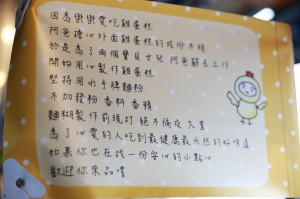 因為樂樂愛吃雞蛋糕
阿爸擔心外面雞蛋糕的成份不明
於是為了兩個寶貝女兒 阿爸辭去工作
開始用心製作雞蛋糕
堅持用水手牌麵粉
不加發粉 香料 香精
麵糊製作前現打 絕不隔夜久置
為了心愛的人吃到最健康最天然的好味道
如果你也在找一份安心的小點心
歡迎你來品嚐